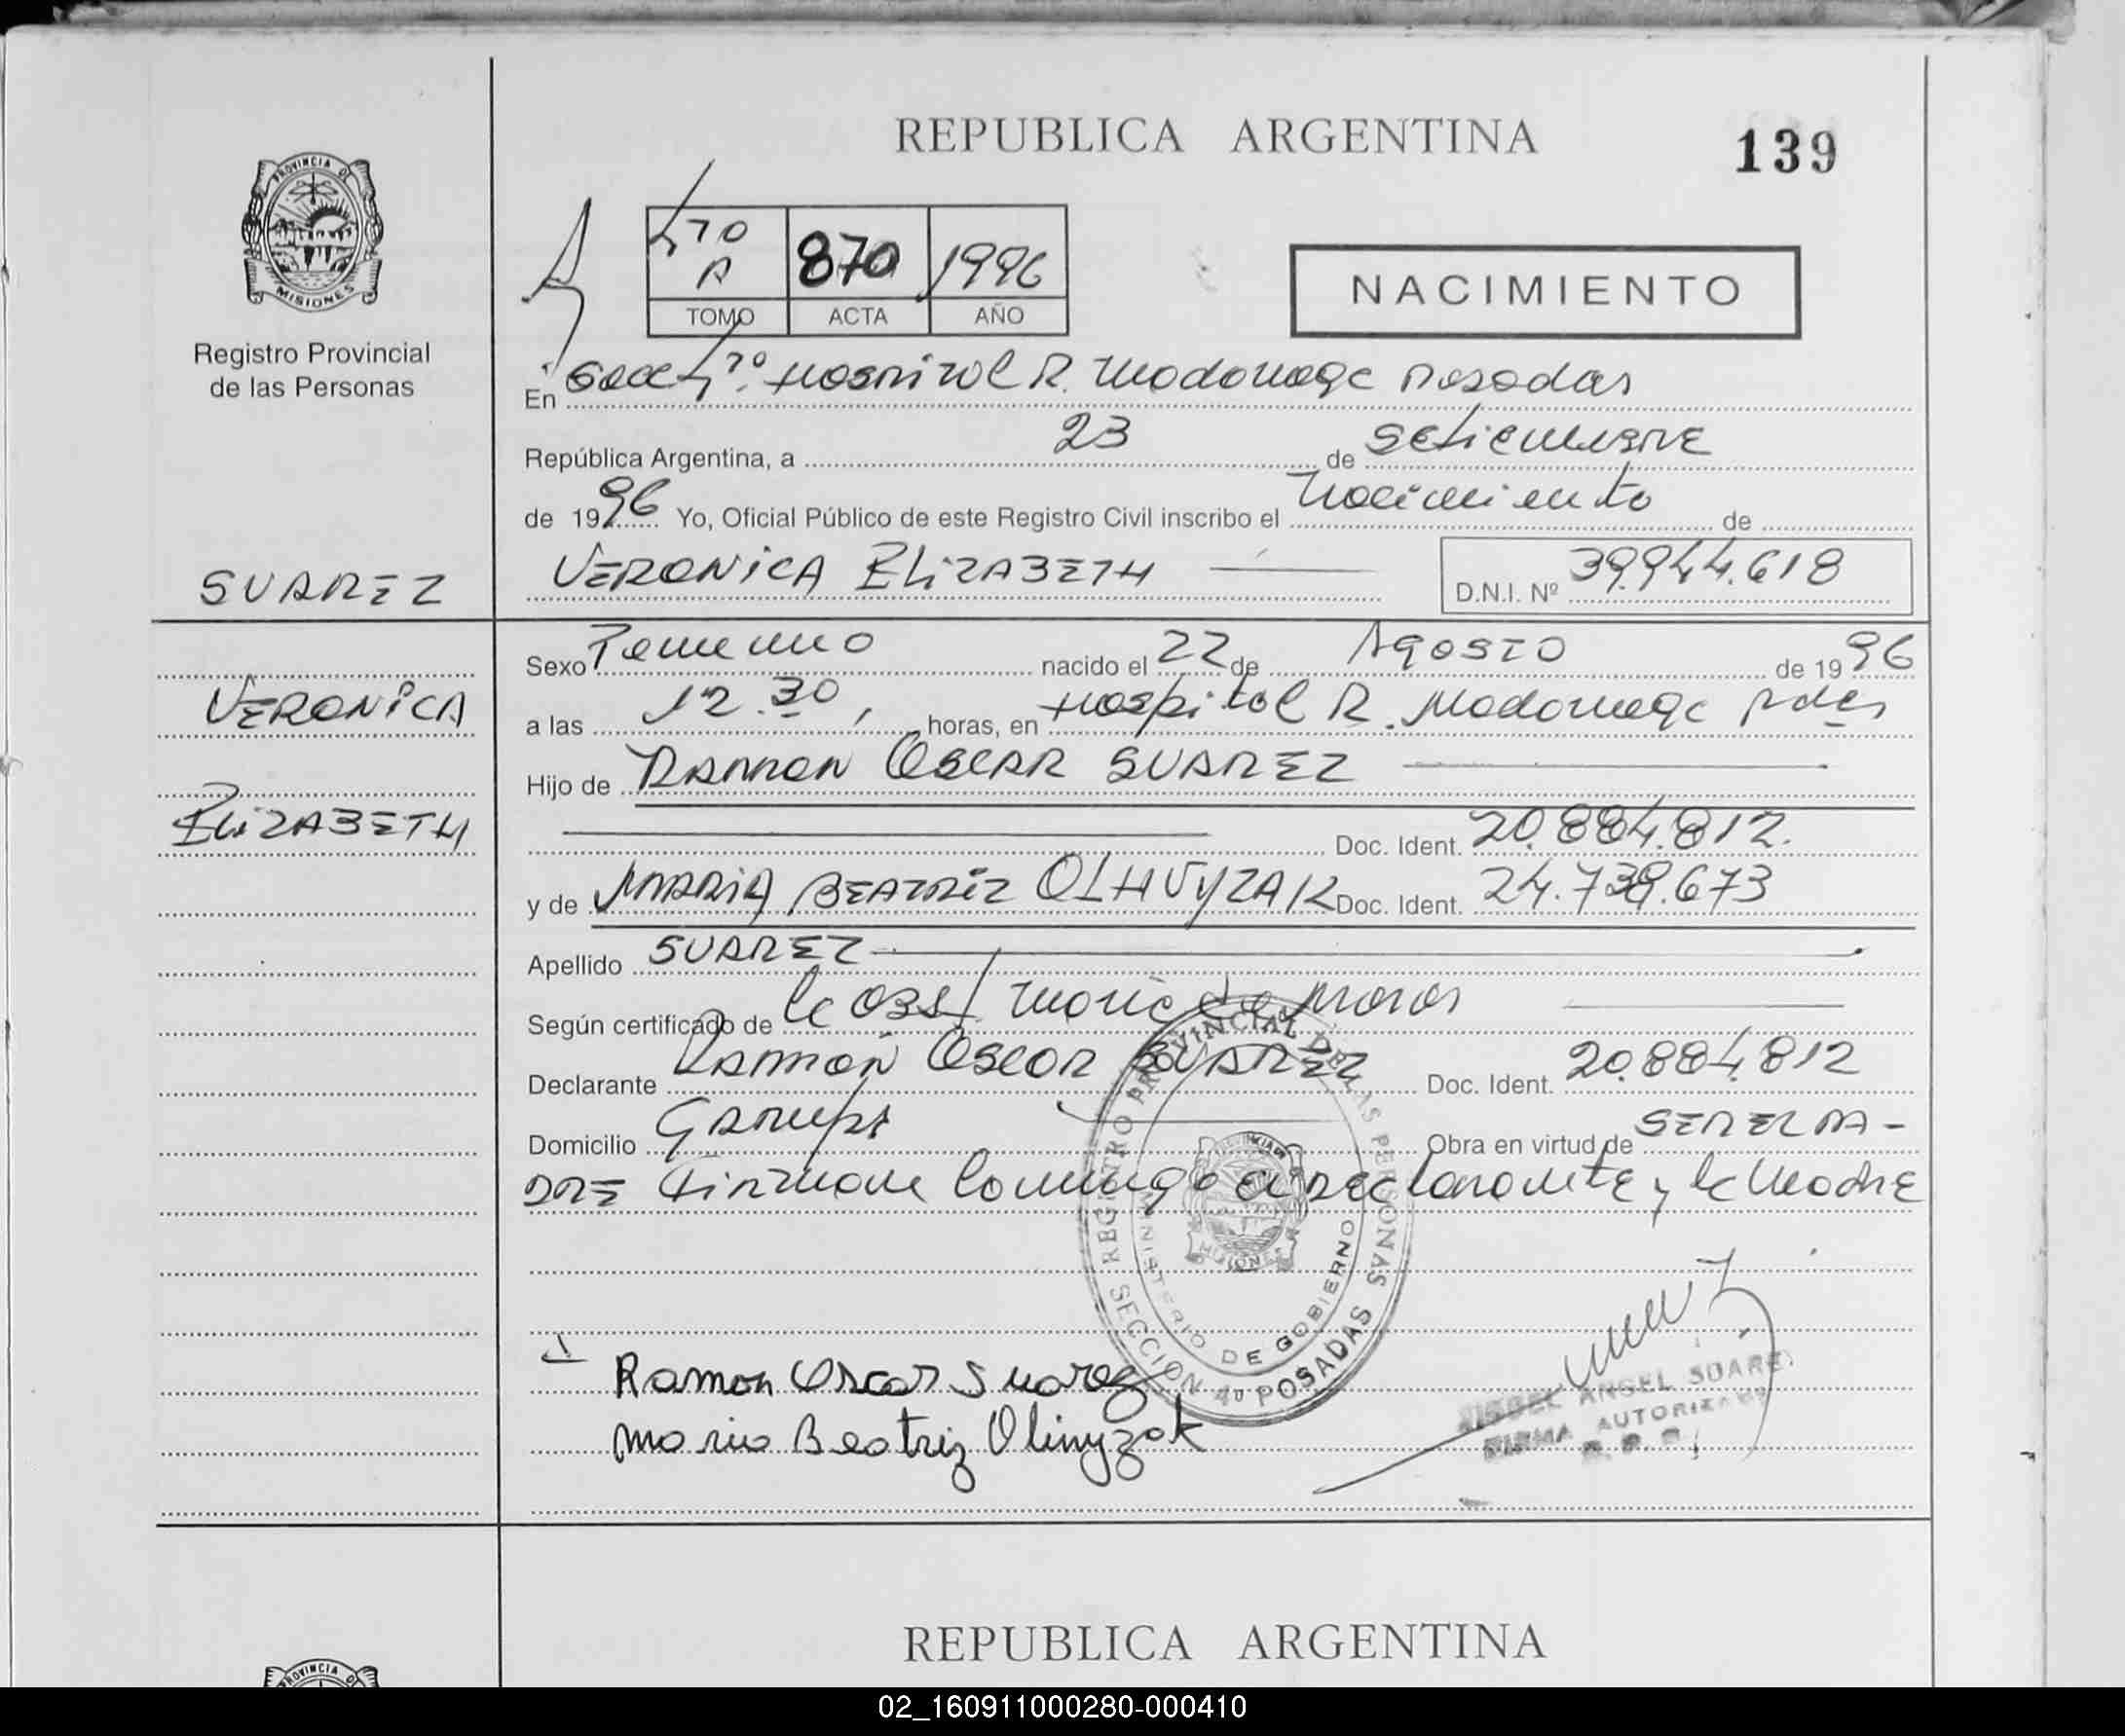 REPUBLICA ARGENTINA
139
PROVINCIA DE
MISIONES
Registro Provincial
de las Personas
4TO A 870 1996
TOMO ACTA AÑO
NACIMIENTO
En Secc 4º. Hospital R. Madariaga Posadas
República Argentina, a 23 de setiembre
de 1996 Yo, Oficial Público de este Registro Civil inscribo el nacimiento de
VERONICA ELIZABETH
D.N.I. Nº 39.944.618
SUAREZ
VERONICA
ELIZABETH
Sexo Femenino nacido el 22 de AGOSTO de 1996
a las 12.30, horas, en Hospital R. Madariaga Pdas
Hijo de RAMON OSCAR SUAREZ
Doc. Ident. 20.884.812.
y de MARIA BEATRIZ OLHVYZAK Doc. Ident. 24.739.673
Apellido SUAREZ
Según certificado de la OBST Maria de
Declarante RAMON OSCAR SUAREZ Doc. Ident. 20.884.812
Domicilio GARUPA Obra en virtud de SER EL PA-
DRE Firman conmigo el declarante y la madre
REGISTRO PROVINCIAL DE LAS PERSONAS
MINISTERIO DE GOBIERNO
MISIONES
SECCION 4º POSADAS
Ramon Oscar Suarez
Maria Beatriz Olinyzak
MIGUEL ANGEL SUAREZ
FIRMA AUTORIZADA
REPUBLICA ARGENTINA
PROVINCIA DE
02_160911000280-000410